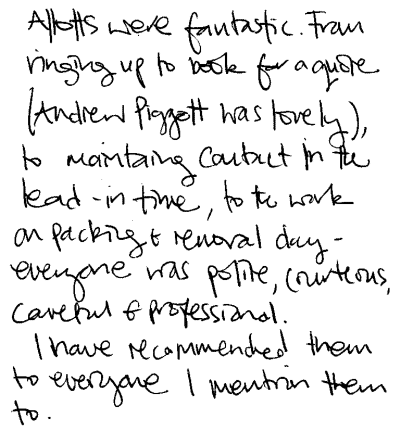 Allotts were fantastic. From
ringing up to book for a quote
(Andrew Piggott was lovely),
to maintaing contact in the
lead-in time, to the work
on packing & removal day -
everyone was polite, courteous,
careful & professional.
I have recommended them
to everyone I mention them
to.